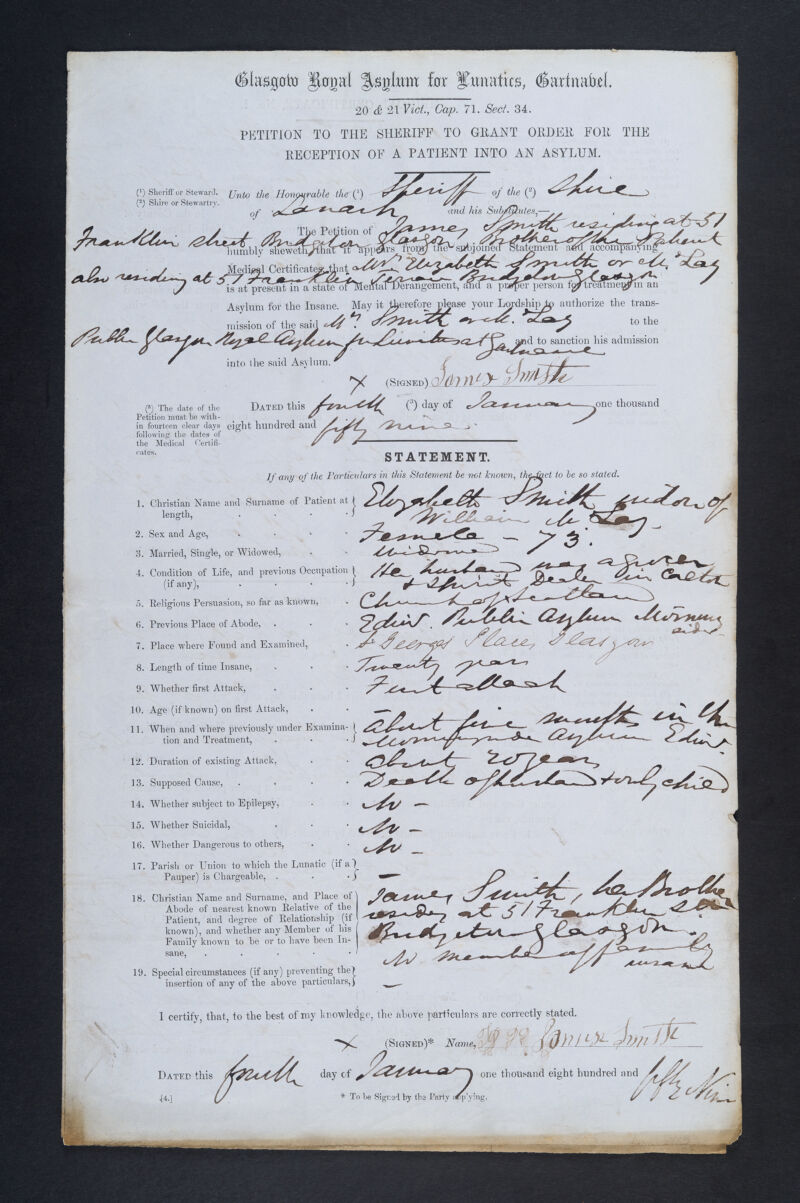 Glasgow Royal Asylum for Lunatics, Gartnavel.
20 & 21 Vict., Cap. 71. Sect. 34.
PETITION TO THE SHERIFF TO GRANT ORDER FOR THE
RECEPTION OF A PATIENT INTO AN ASYLUM.
(¹) Sheriff or Steward.
(²) Shire or Stewartry.
Unto the Honourable the (¹) Sheriff of the (²) Shire
of Lanark and his Substitutes,—
The Petition of James Smith residing at 51
Franklin street Bridgeton Glasgow Brother of the Patient
humbly sheweth, that it appears from the subjoined Statement and accompanying
Medical Certificates, that Mrs Elizabeth Smith or McLay
also residing at 51 Franklin Street Bridgeton Glasgow
is at present in a state of Mental Derangement, and a proper person for treatment in an
Asylum for the Insane. May it therefore please your Lordship to authorize the trans-
mission of the said Mrs Smith or McLay to the
Public Glasgow Royal Asylum for Lunatics at and to sanction his admission
into the said Asylum.
X (SIGNED) James Smith
(³) The date of the
Petition must be with-
in fourteen clear days
following the dates of
the Medical Certifi-
cates.
DATED this fourth (³) day of January one thousand
eight hundred and fifty nine.
STATEMENT.
If any of the Particulars in this Statement be not known, the fact to be so stated.
1. Christian Name and Surname of Patient at length, Elizabeth Smith widow of
William McLay.
2. Sex and Age, Female – 73.
3. Married, Single, or Widowed, Widowed
4. Condition of Life, and previous Occupation (if any), Her husband was a grocer
& Spirit Dealer in Calton
5. Religious Persuasion, so far as known, Church of Scotland
6. Previous Place of Abode, Edinr. Public Asylum Morning
side
7. Place where Found and Examined, St Georges Place, Glasgow
8. Length of time Insane, Twenty years
9. Whether first Attack, First attack
10. Age (if known) on first Attack, –
11. When and where previously under Examina-
tion and Treatment, About five months in the
Morningside Asylum Edinr.
12. Duration of existing Attack, About 20 years
13. Supposed Cause, Death of husband & only child
14. Whether subject to Epilepsy, No –
15. Whether Suicidal, No –
16. Whether Dangerous to others, No –
17. Parish or Union to which the Lunatic (if a
Pauper) is Chargeable, –
18. Christian Name and Surname, and Place of
Abode of nearest known Relative of the
Patient, and degree of Relationship (if
known), and whether any Member of his
Family known to be or to have been In-
sane,
James Smith, her Brother
residing at 51 Franklin Street
Bridgeton Glasgow.
No member of family
insane
19. Special circumstances (if any) preventing the
insertion of any of the above particulars, –
I certify, that, to the best of my knowledge, the above particulars are correctly stated.
X (SIGNED)* Name, James Smith
DATED this fourth day of January one thousand eight hundred and fifty Nine
[4.]
* To be Signed by the Party applying.